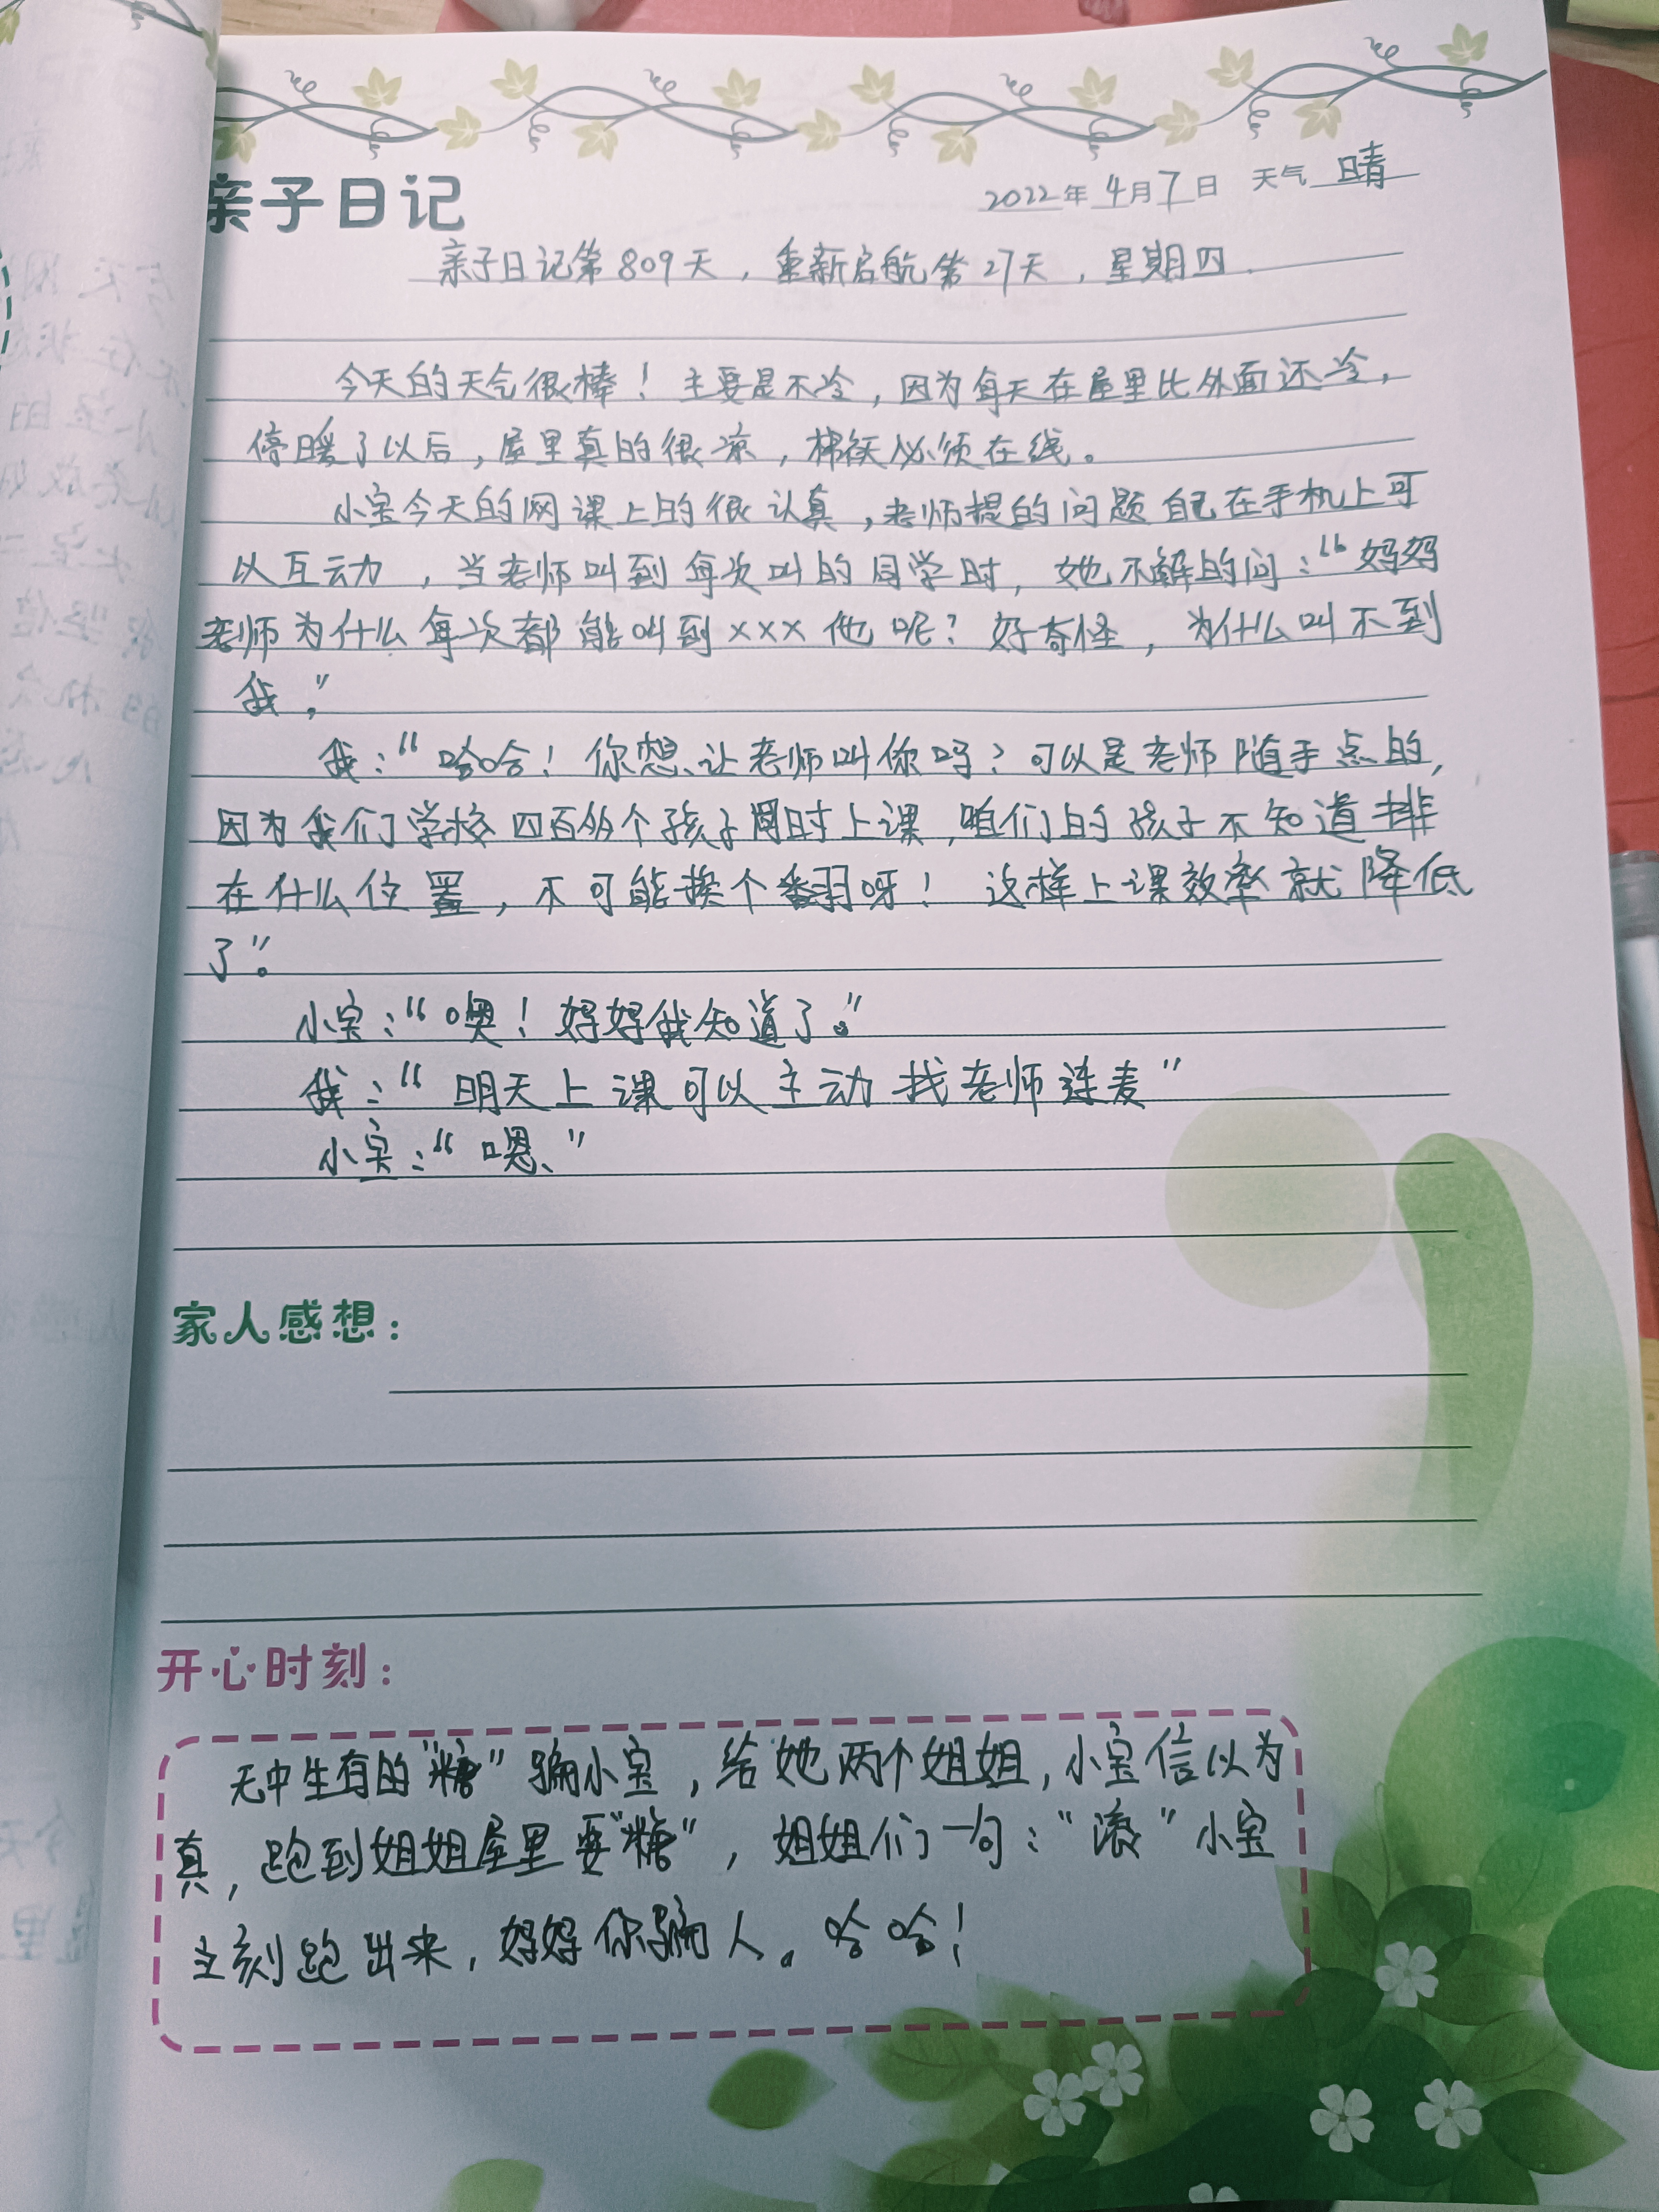 亲子日记
2022年4月7日 天气 晴
亲子日记第809天，重新启航第27天，星期四
今天的天气很棒！主要是不冷，因为每天在屋里比外面还冷，
停暖了以后，屋里真的很凉，棉袄必须在线。
小宝今天的网课上的很认真，老师提的问题自己在手机上可
以互动，当老师叫到每次叫的同学时，她不解的问：“妈妈
老师为什么每次都能叫到×××他呢？好奇怪，为什么叫不到
我。”
我：“哈哈！你想让老师叫你吗？可以是老师随手点的，
因为我们学校四百多个孩子同时上课，咱们的孩子不知道排
在什么位置，不可能挨个翻呀！这样上课效率就降低
了”。
小宝：“噢！妈妈我知道了。”
我：“明天上课可以主动找老师连麦”
小宝：“嗯、”
家人感想：
开心时刻：
无中生有的“糖”骗小宝，给她两个姐姐，小宝信以为
真，跑到姐姐屋里要“糖”，姐姐们一句：“滚”小宝
立刻跑出来，妈妈你骗人。哈哈！